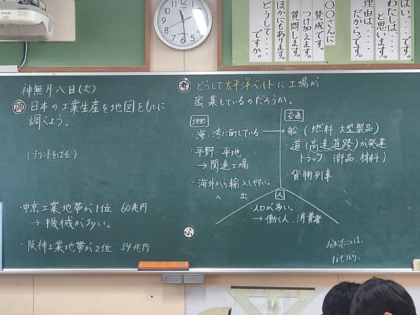 神無月八日(火)
問 日本の工業生産を地図をもとに
調べよう。
(プリントをはる)
・中京工業地帯が1位 60兆円
→ 機械が多い。
・阪神工業地帯が2位 34兆円
考 どうして太平洋ベルトに工場が
密集しているのだろうか。
地形
・海、湾に面している
・平野 平地
→ 関連工場
・海外から輸入しやすい。
出
交通
船 (燃料、大型製品)
・道(高速道路)が発達
トラック (部品、材料)
・貨物列車
人
人口が多い。
→ 働く人、消費者
分かったことは、
なぜなら、
〇〇さんに
賛成です。
つけ加えます。
質問します。
ほかにもあります。
どうして
ですか。
わたしは、
と思います。
理由は、
だからです。